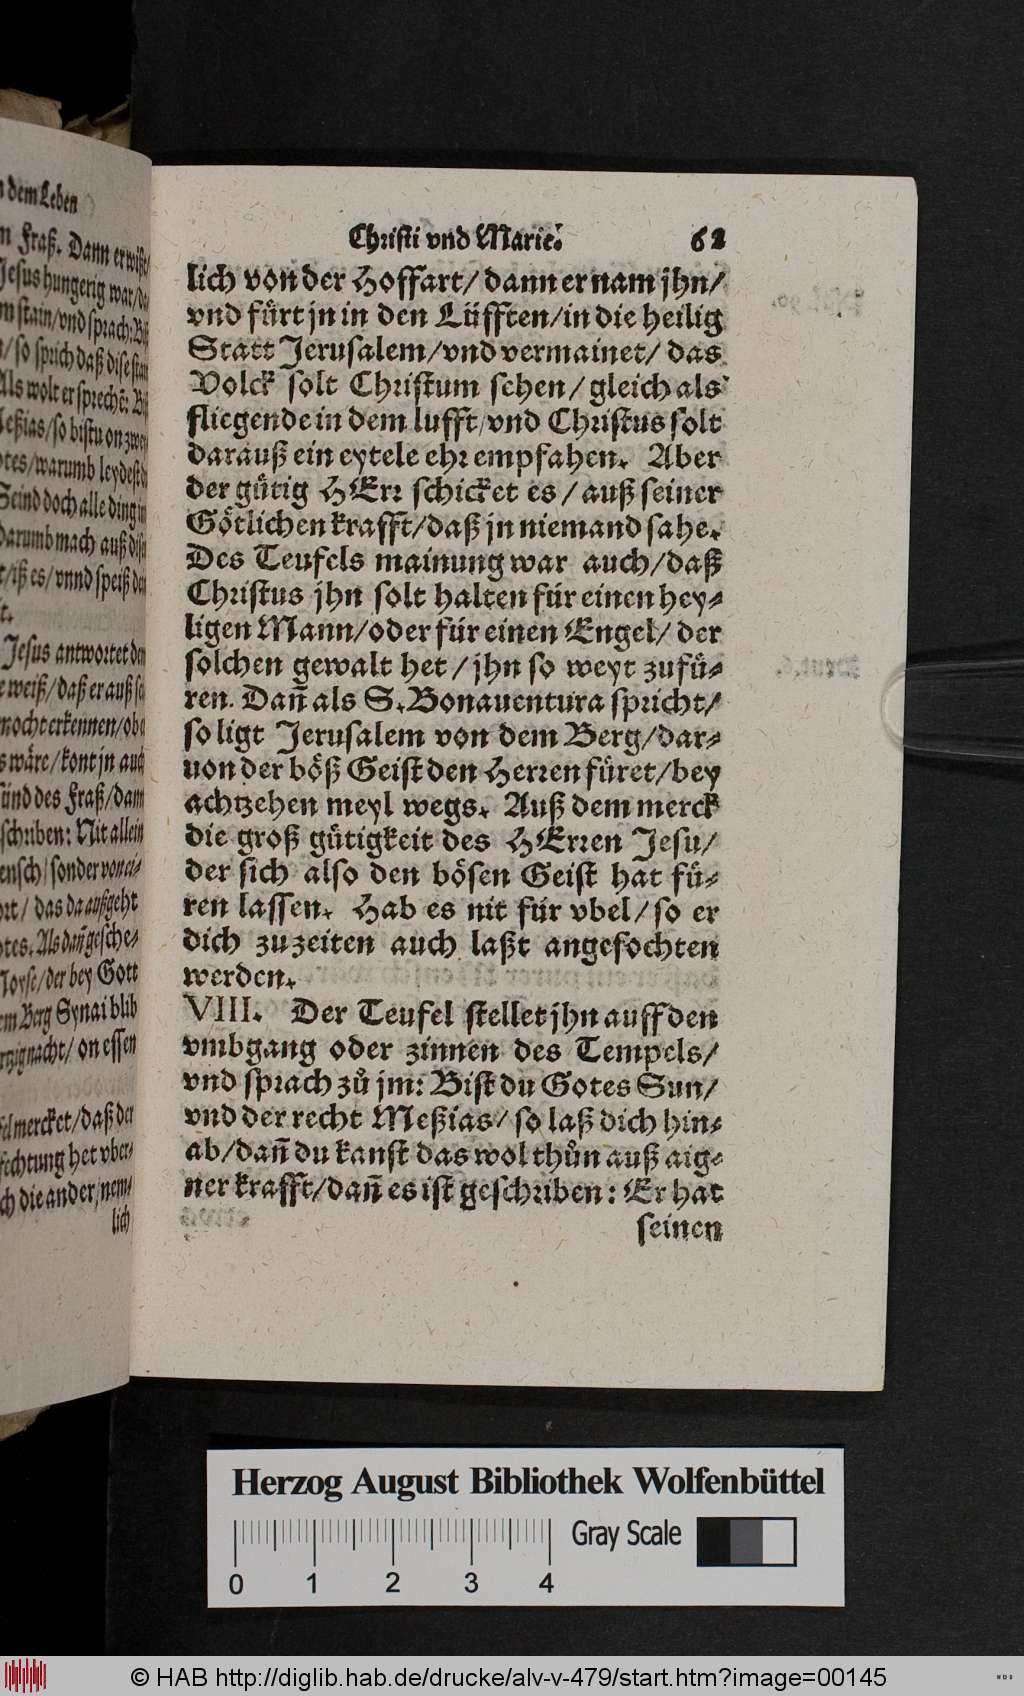 n dem Leben
n Fraß. Dann er wiße
Jesus hungerig war/da
m stain/vnd sprach: Bist
/so sprich daß dise stai
Als wolt er sprechē: Bi
Meßias/so bistu on zwey
otes/warumb leydest d
Seind doch alle ding in
Darumb mach auß dis
t/iß es/vnnd speiß de
t.
Jesus antwortet dem
e weiß/daß er auß sei
mocht erkennen/ob e
s wäre/kont jn auch
sünd des Fraß/dann
schriben: Nit allein
ensch/sonder von ei-
ort/ das da außgeht
otes. Als dañ gesche-
Moyse/der bey Gott
em Berg Synai blib
rtzig nacht/ on essen
fel mercket/daß der
fechtung het vber-
ch die ander/nem-
lich
Christi vnd Marie. 62
lich von der Hoffart/ dann er nam jhn/
vnd fürt jn in den Lüfften/in die heilig
Statt Jerusalem/vnd vermainet/ das
Volck solt Christum sehen/ gleich als
fliegende in dem lufft/vnd Christus solt
darauß ein eytele ehr empfahen. Aber
der gütig HErr schicket es/ auß seiner
Götlichen krafft/daß jn niemand sahe.
Des Teufels mainung war auch/daß
Christus jhn solt halten für einen hey-
ligen Mann/oder für einen Engel/ der
solchen gewalt het/ jhn so weyt zufü-
ren. Dañ als S. Bonauentura spricht/
so ligt Jerusalem von dem Berg/dar-
uon der böß Geist den Herren füret/bey
achtzehen meyl wegs. Auß dem merck
die groß gütigkeit des HErren Jesu/
der sich also den bösen Geist hat fü-
ren lassen. Hab es nit für vbel/ so er
dich zuzeiten auch laßt angefochten
werden.
VIII. Der Teufel stellet jhn auff den
vmbgang oder zinnen des Tempels/
vnd sprach zů jm: Bist du Gotes Sun/
vnd der recht Meßias/ so laß dich hin-
ab/dañ du kanst das wol thůn auß aig-
ner krafft/dañ es ist geschriben: Er hat
seinen
Herzog August Bibliothek Wolfenbüttel
Gray Scale
0 1 2 3 4
© HAB http://diglib.hab.de/drucke/alv-v-479/start.htm?image=00145